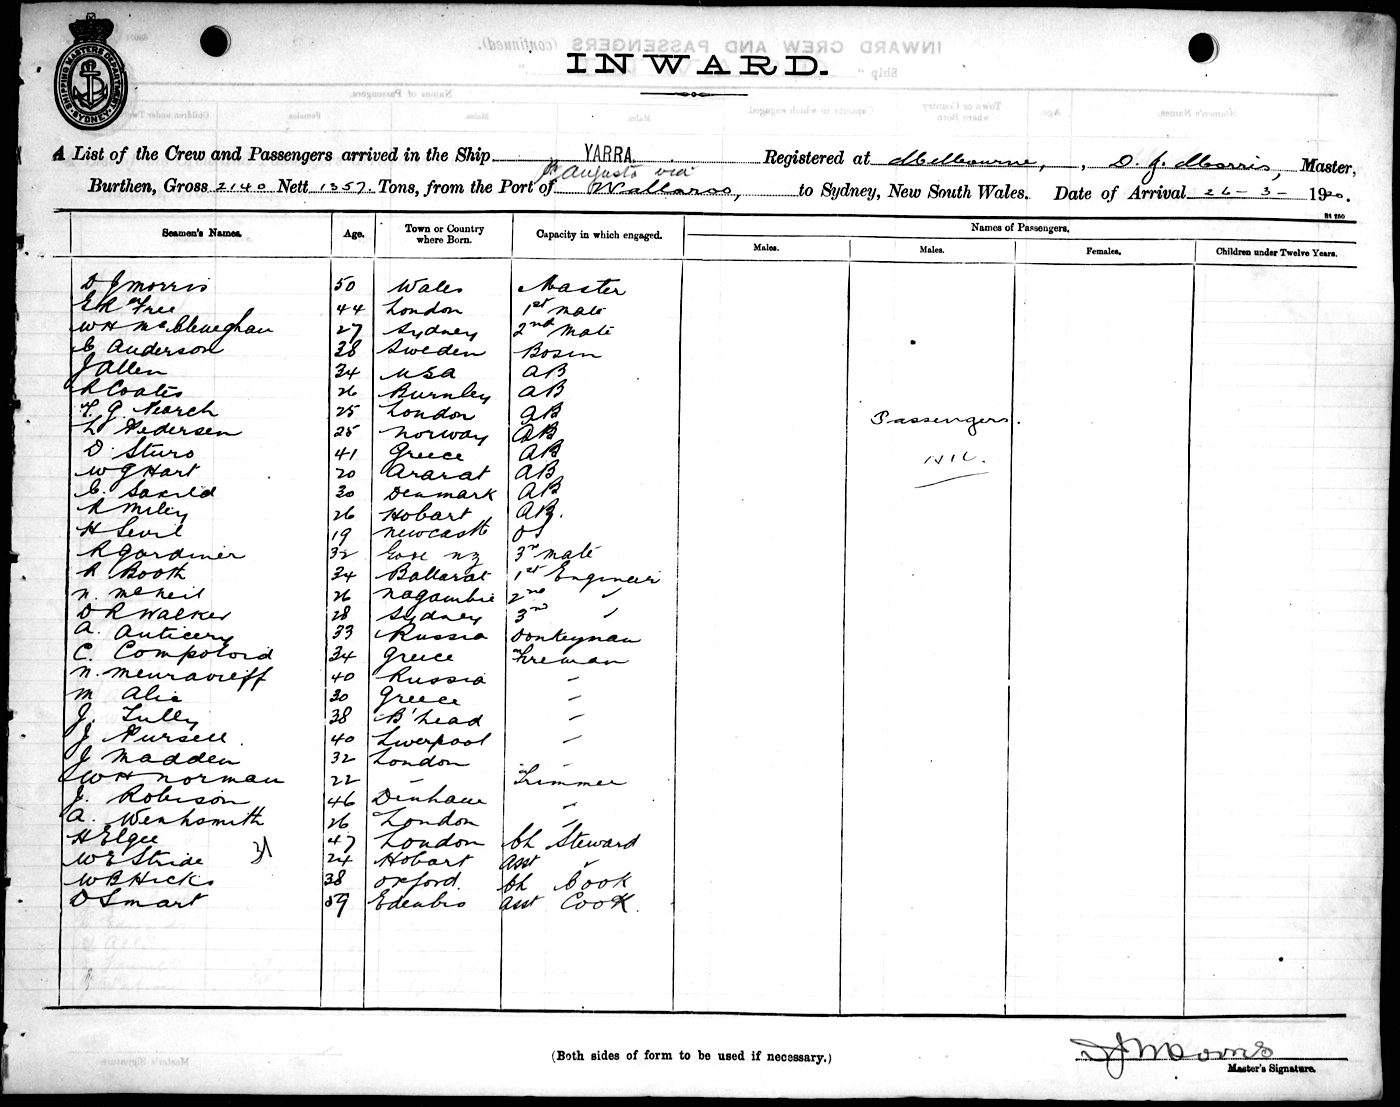 SHIPPING MASTERS DEPARTMENT SYDNEY
INWARD.
A List of the Crew and Passengers arrived in the Ship YARRA. Registered at Melbourne, D. J. Morris, Master,
Pt Augusta via
Burthen, Gross 2140 Nett 1357. Tons, from the Port of Wallaroo, to Sydney, New South Wales. Date of Arrival 26-3-1920.
Seamen's Names. Age. Town or Country where Born. Capacity in which engaged. Names of Passengers.
Males. Males. Females. Children under Twelve Years.
D J Morris 50 Wales Master
E R Free 44 London 1st mate
W H McCleneghan 27 Sydney 2nd Mate
C Anderson 38 Sweden Bosun
J Allen 34 USA AB
R Coates 26 Burnley AB
F. G. Pearch 25 London AB
Passengers.
L Pedersen 25 Norway AB
D. Sturo 41 Greece AB
Nil.
W G Hart 20 Ararat AB
C. 30 Denmark AB
R Miley 26 Hobart AB.
H Sevil 19 Newcastle OS
R Gardiner 32 Gore NZ 3rd mate
R Booth 34 Ballarat 1st Engineer
N. McNeil 26 Nagambie 2nd "
D R Walker 28 Sydney 3rd "
A. 33 Russia Donkeyman
C. 34 Greece Fireman
N. Meuravieff 40 Russia "
M Alic 30 Greece "
J. Tully 38 B'head "
J Pursell. 40 Liverpool "
J Madden 32 London "
W H Norman 22 " Trimmer
J. Robison 46 "
A. Wenhsmith 26 London "
H Elgee 47 London Ch Steward
31
W E Stride 24 Hobart asst "
W B Hicks 38 Oxford. Ch Cook
D Smart 59 asst Cook.
(Both sides of form to be used if necessary.)
D J Morris
Master's Signature.